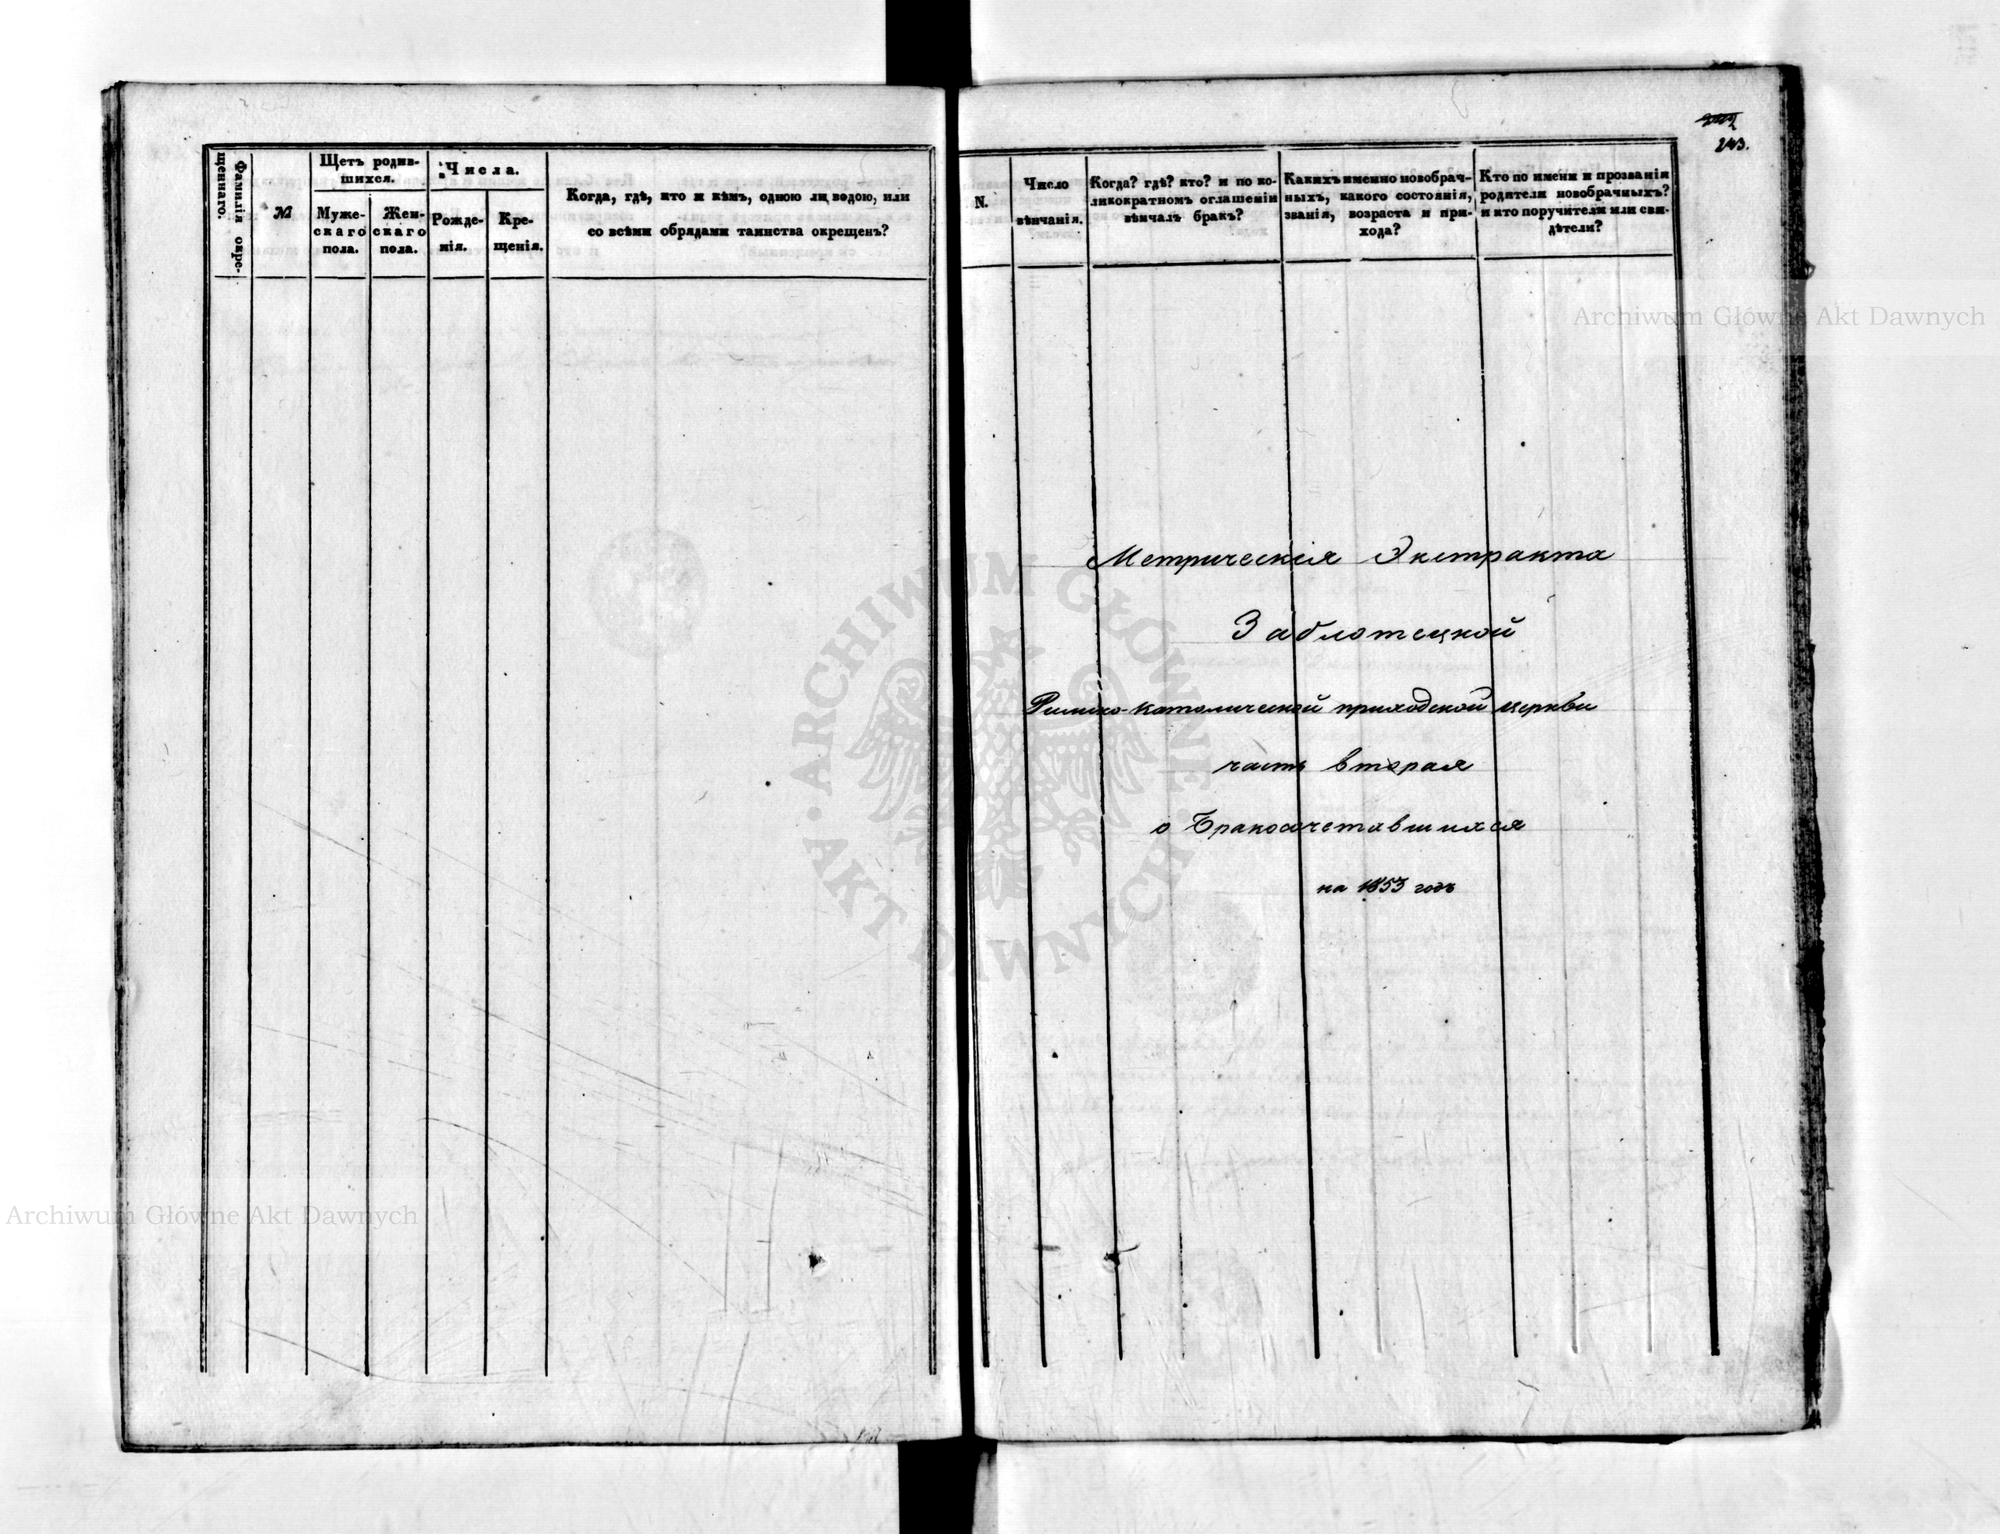 Фамилія окре-
щеннаго.
№
Щетъ родив-
шихся.
Муже-
скаго
пола.
Жен-
скаго
пола.
Числа.
Рожде-
нія.
Кре-
щенія.
Когда, гдѣ, кто и кѣмъ, одною ли водою, или
со всѣми обрядами таинства окрещенъ?
243.
N.
Число
вѣнчанія.
Когда? гдѣ? кто? и по ко-
ликократномъ оглашеніи
вѣнчалъ бракъ?
Какихъ именно новобрач-
ныхъ, какого состоянія,
званія, возраста и при-
хода?
Кто по имени и прозванію
родители новобрачныхъ?
и кто поручители или сви-
дѣтели?
Метрическія Экстракта
Заблотецкой
Римско-католической приходской церкви
часть вторая
о Бракосочетавшихся
на 1853 годъ
Archiwum Główne Akt Dawnych
ARCHIWUM GŁÓWNE · AKT DAWNYCH ·
Archiwum Główne Akt Dawnych